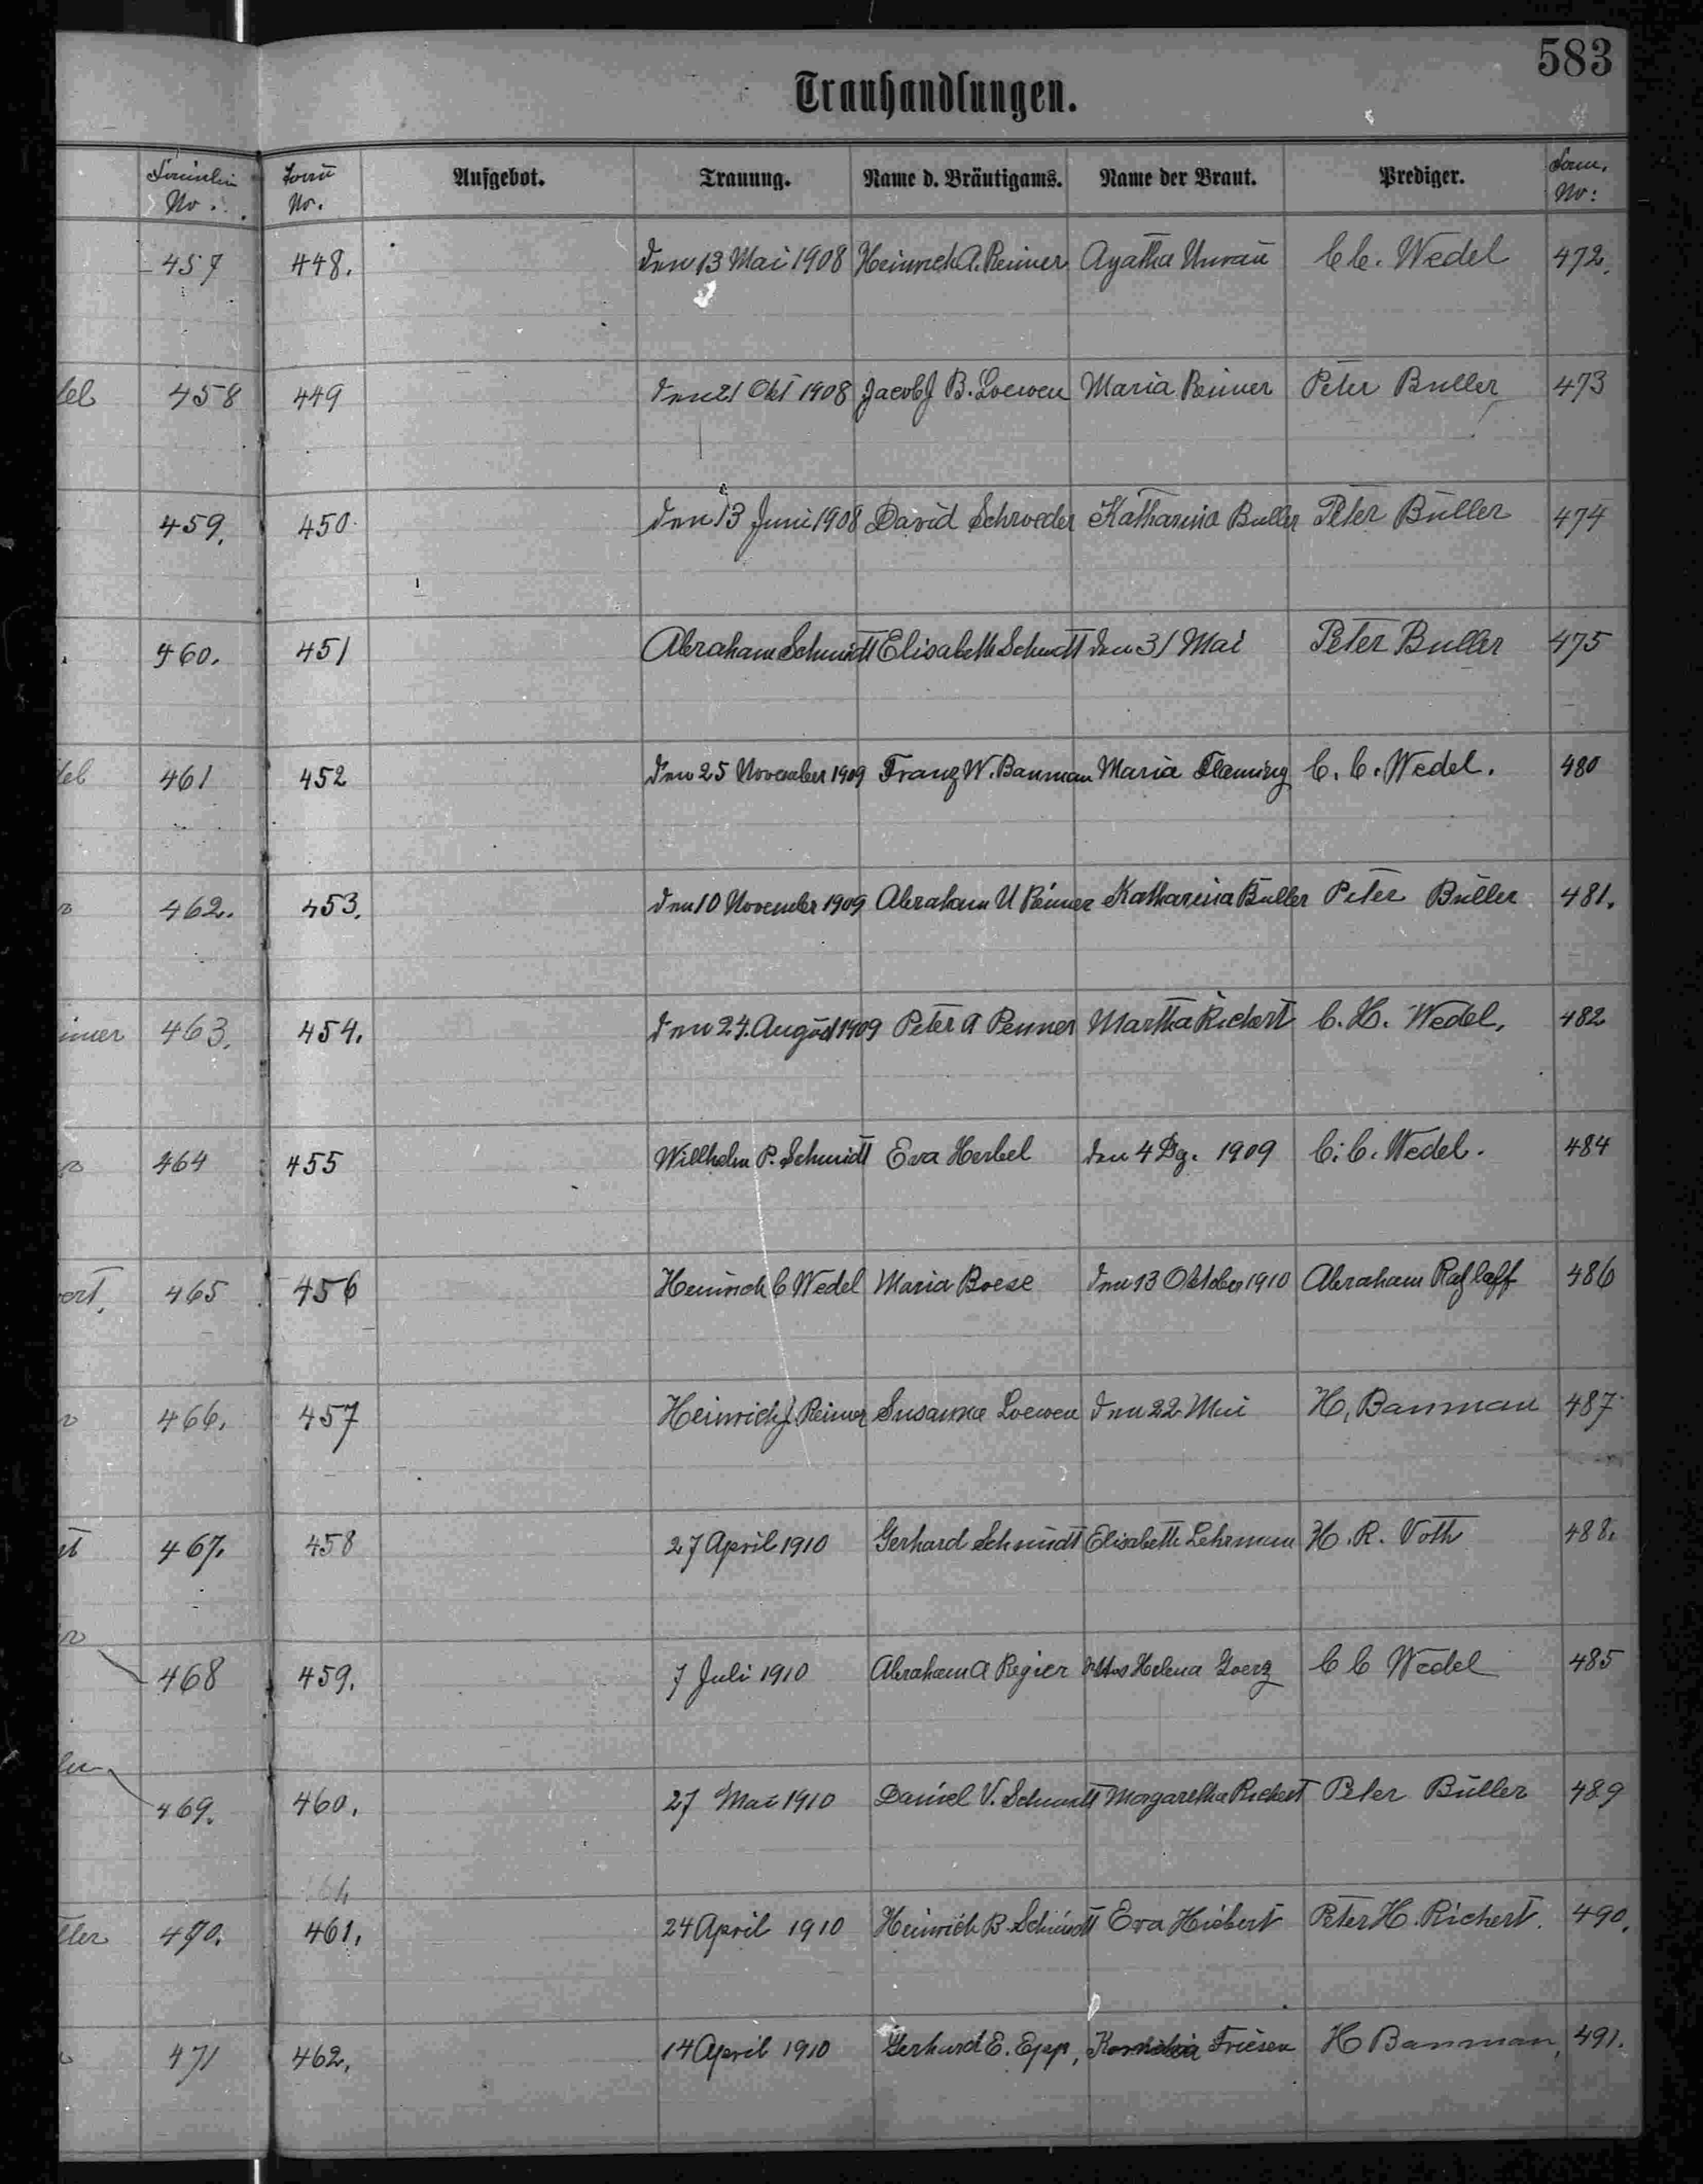 583
Trauhandlungen.
Familien No. Famil No. Aufgebot. Trauung. Name d. Bräutigams. Name der Braut. Prediger. Fam. No:
457 448. den 13 Mai 1908 Heinrich A. Reimer Agatha Unrau C C. Wedel 472.
del 458 449 den 21 Okt 1908 Jacob J B. Loewen Maria Reimer Peter Buller 473
459. 450. den 13 Juni 1908 David Schroeder Katharina Buller Peter Buller 474
460. 451 Abraham Schmidt Elisabeth Schmidt den 31 Mai Peter Buller 475
del 461 452 den 25 November 1909 Franz W. Banman Maria Flaming C. C. Wedel. 480
462. 453. den 10 November 1909 Abraham U Reimer Katharina Buller Peter Buller 481.
imer 463. 454. den 24. August 1909 Peter A Penner Martha Richert C. H. Wedel. 482
464 455 Willhelm P. Schmidt Eva Herbel den 4 Dz. 1909 C. C. Wedel. 484
ert. 465 456 Heinrich C Wedel Maria Boese den 13 Oktober 1910 Abraham Ratzlaff 486
466. 457 Heinrich J. Reimer Susanna Loewen den 22 Mai H. Banman 487
467. 458 27 April 1910 Gerhard Schmidt Elisabeth Lehrman H. R. Voth 488.
468 459. 7 Juli 1910 Abraham A Regier Helena Goerz C C Wedel 485
469. 460. 27 Mai 1910 Daniel V. Schmidt Margaretha Richert Peter Buller 489
ller 470. 461. 24 April 1910 Heinrich B. Schmidt Eva Hiebert Peter H. Richert. 490.
471 462. 14 April 1910 Gerhard E. Epp, Friesen H Banman, 491.